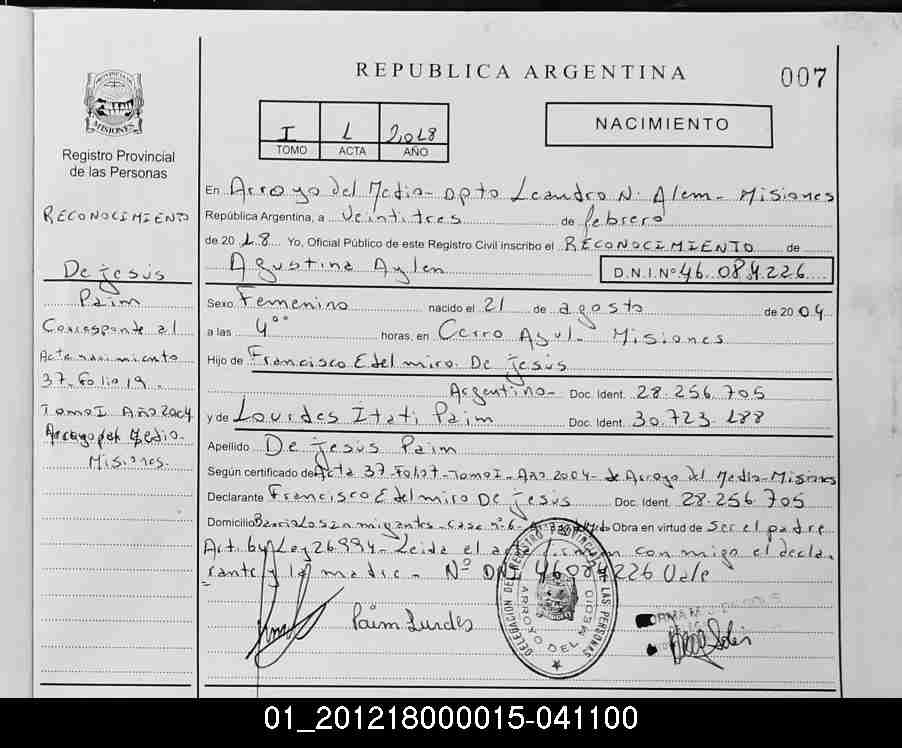 REPUBLICA ARGENTINA
007
MISIONES
Registro Provincial
de las Personas
I L 2018
TOMO ACTA AÑO
NACIMIENTO
RECONOCIMIENTO
De jesús
Paim
Corresponde al
Acta nacimiento
37. Folio 19.
Tomo I Año 2004
Arroyo del Medio.
Misiones.
En Arroyo del Medio - Dpto Leandro N. Alem - Misiones
República Argentina, a Veintitres de febrero
de 20 18 Yo, Oficial Público de este Registro Civil inscribo el RECONOCIMIENTO de
Agustina Aylen D.N.I. Nº 46.084.226
Sexo Femenino nacido el 21 de agosto de 20 04
a las 4°° horas, en Cerro Azul - Misiones
Hijo de Francisco Edelmiro. De jesús
Argentino - Doc. Ident. 28.256.705
y de Lourdes Itati Paim Doc. Ident. 30.723.188
Apellido De jesus Paim
Según certificado de Acta 37. Fol. - Tomo I - Año 2004 - de Arroyo del Medio - Misiones
Declarante Francisco Edelmiro De jesús Doc. Ident. 28.256.705
Domicilio Los inmigrantes - casa nº 6 - Obra en virtud de Ser el padre
Art. Ley 26994 - Leida el acta firman conmigo el decla-
rante y la madre - Nº DNI 46084226 Vale
Paim Lurdes
DELEGACION DEL REGISTRO PROVINCIAL DE LAS PERSONAS
ARROYO DEL MEDIO
01_201218000015-041100